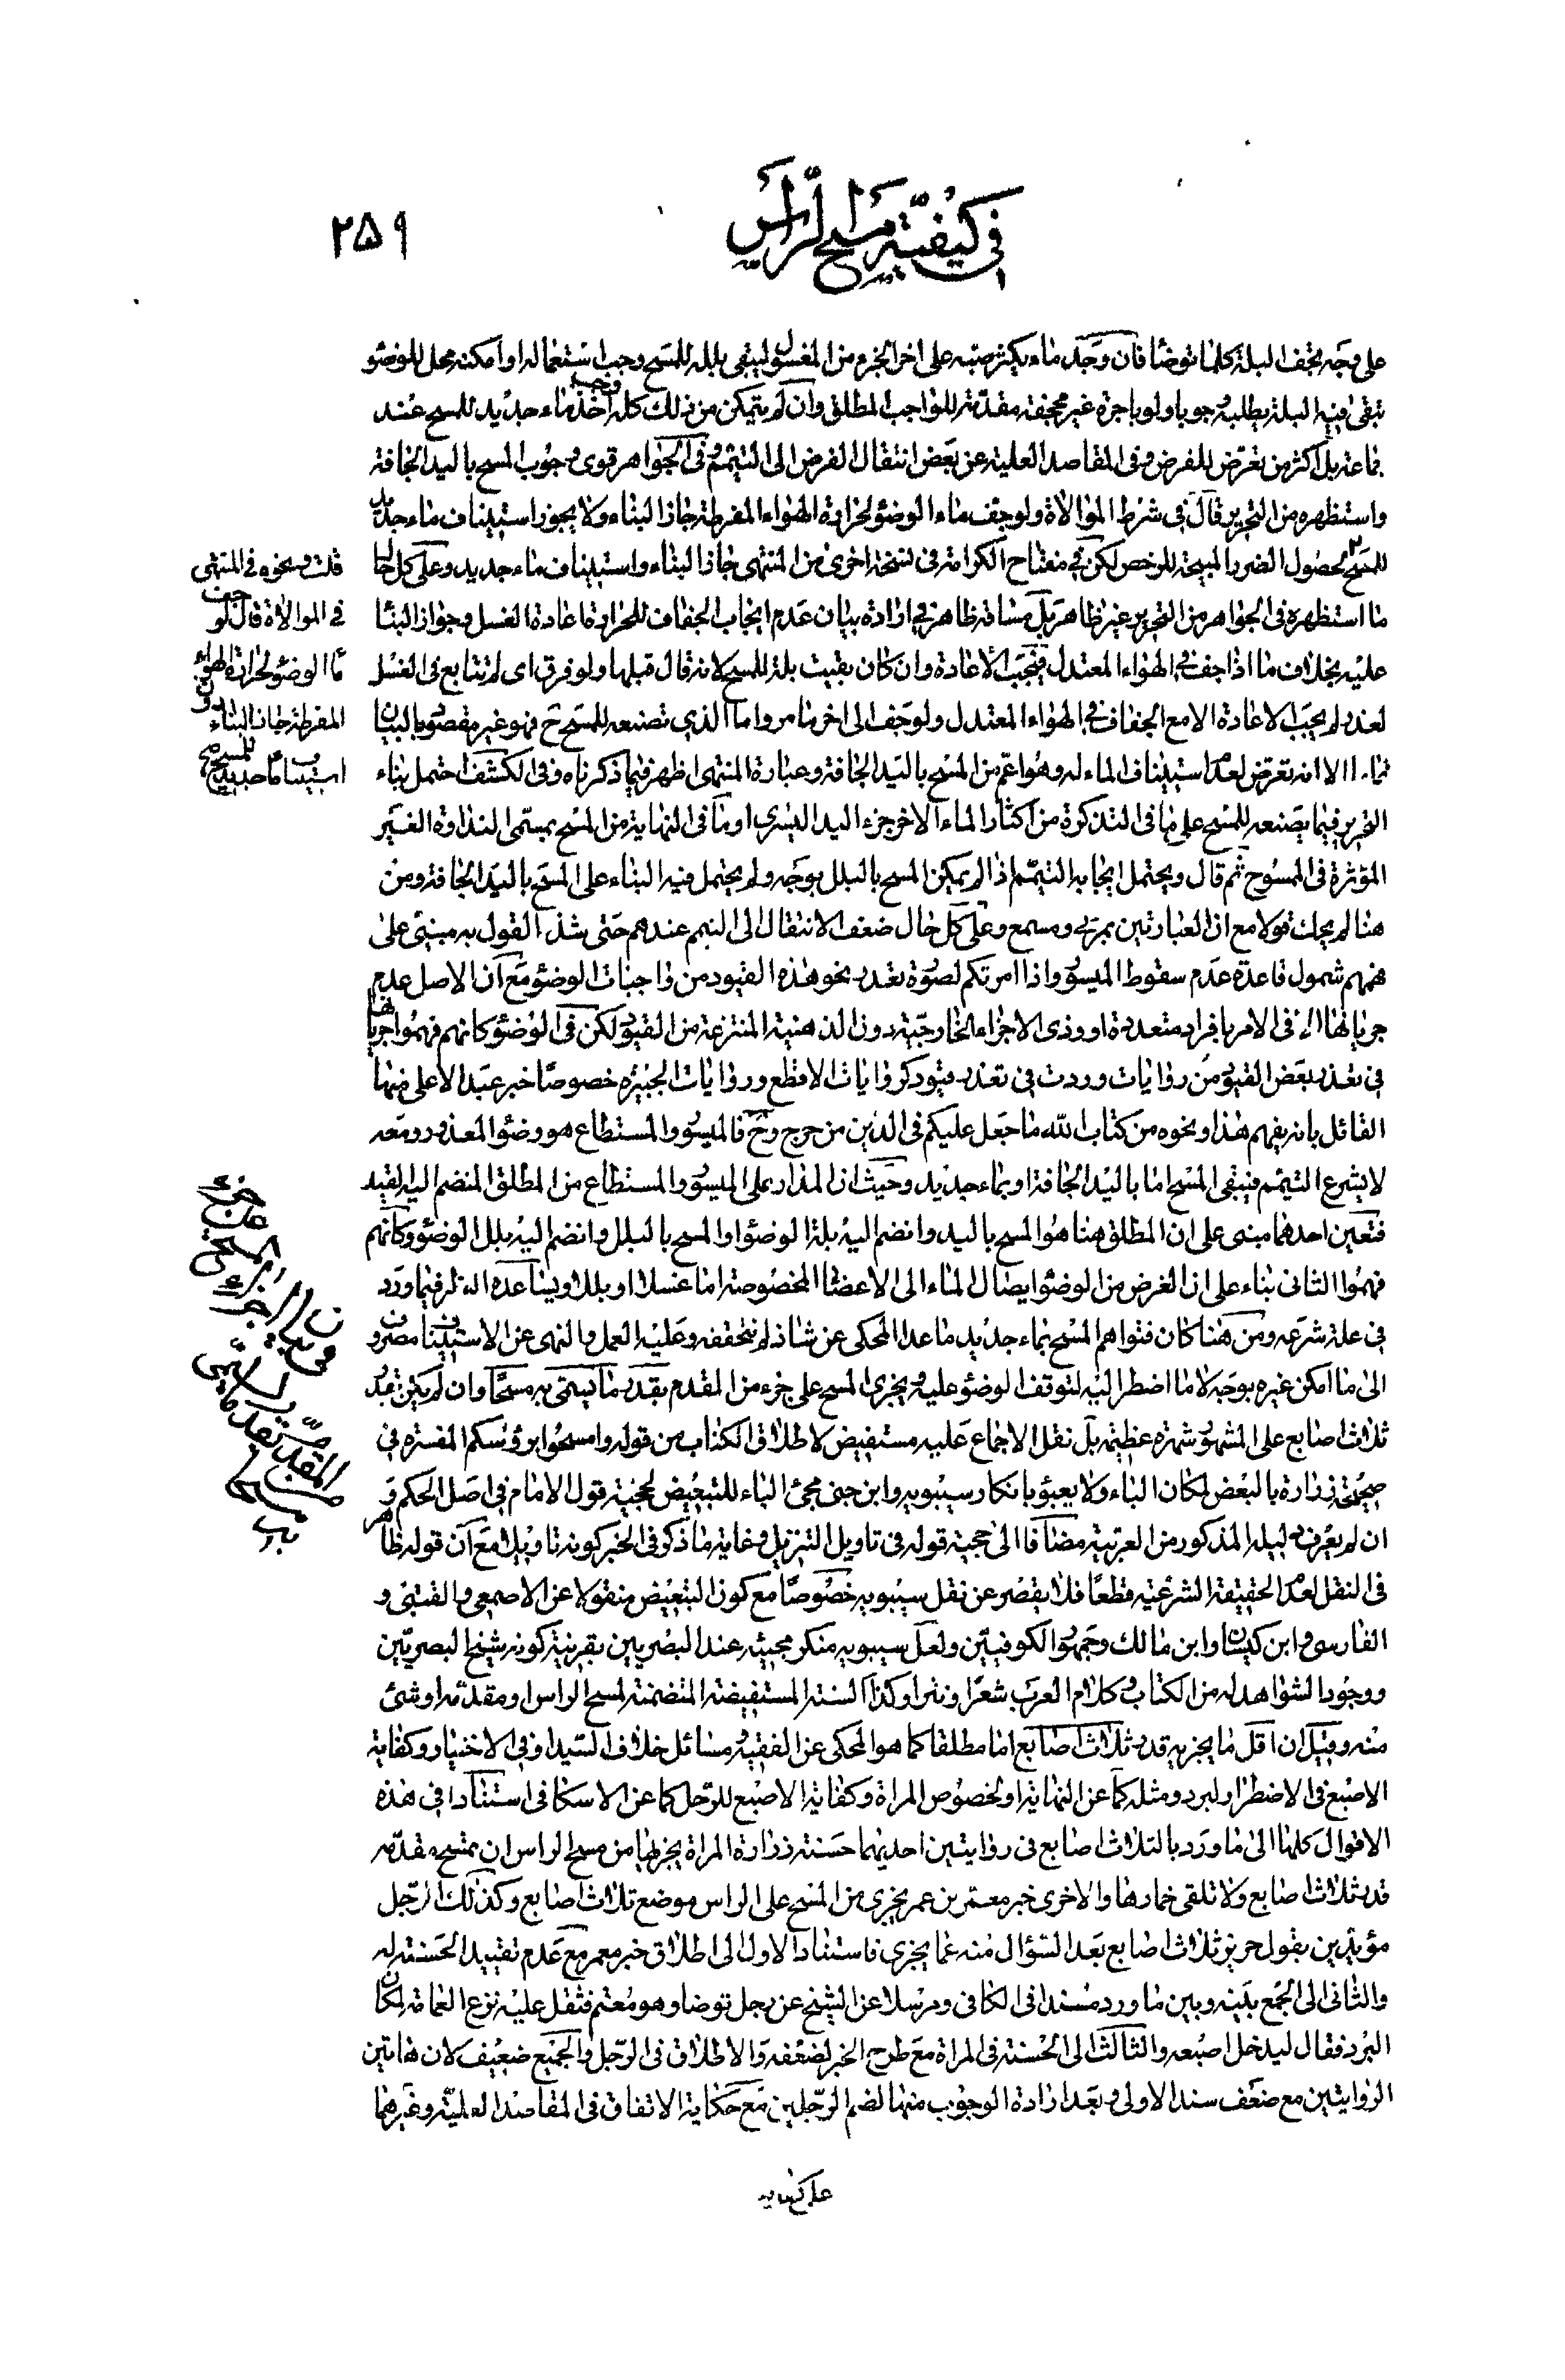 في كيفية مسح الرأس
٢٥٩
على وجه تجف البلة كلما توضأ فان وجد ماء يكثر صبه على اخر الجزء من المغسول ليبقى بلله للمسح وجب استعماله او امكنه محل للوضوء
تبقى فيه البلة يطلبه وجوبا ولو باجرة غير مجحفة مقدمة للواجب المطلق وان لم يتمكن من ذلك كله وجب اخذ ماء جديد للمسح عند
جماعة بل اكثر من تعرض للفرض وفي المقاصد العلية عن بعض انتقال الفرض الى التيمم وفي الجواهر قوى وجوب المسح باليد الجافة
واستظهره من التحرير قال في شرط الموالاة ولو جف ماء الوضوء لحرارة الهواء المفرطة جاز البناء ولا يجوز استيناف ماء جديد
للمسح لحصول الضرر المبيحة للرخص لكن في مفتاح الكرامة في نسخة اخرى من المنتهى جاز البناء واستيناف ماء جديد وعلى كل حال
ما استظهره في الجواهر من التحرير غير ظاهر بل مساقه ظاهر في ارادة بيان عدم ايجاب الجفاف للحرارة اعادة الغسل وجواز البناء
عليه بخلاف ما اذا جف في الهواء المعتدل فتجب الاعادة وان كان بقيت بلة للمسح لانه قال قبلها ولو فرق اى لم تتابع في الغسل
لعذر لم يجب الاعادة الا مع الجفاف في الهواء المعتدل ولو جف الى اخر ما مر واما الذي تصنعه للمسح ح فهو غير مقصود بالبيان
الا انه تعرض لعدم استيناف الماء له وهو اعم من المسح باليد الجافة وعبارة المنتهى اظهر فيما ذكرناه وفي الكشف احتمل بناء
التحرير فيما يصنعه للمسح على ما في التذكرة من اكثار الماء لاخر جزء اليد اليسرى او ما في النهاية من المسح بمسمى النداوة الغير
المؤثرة في الممسوح ثم قال ويحتمل ايجابه التيمم اذا لم يمكن المسح بالبلل بوجه ولم يحتمل فيه البناء على المسح باليد الجافة ومن
هنا لم يحك قولا مع ان العبارتين بمرئى ومسمع وعلى كل حال ضعف الانتقال الى التيمم عندهم حتى شذ القول به مبنى على
فهمهم شمول قاعدة عدم سقوط الميسور واذا امرتكم لصورة تعذر نحو هذه القيود من واجبات الوضوء مع ان الاصل عدم
جريانها الا في الامر بافراد متعددة او وذى الاجزاء الخارجية دون الذهنية المنتزعة من القيود لكن في الوضوء كانهم فهموا جريانها
في تعذر بعض القيود من روايات وردت في تعذر قيود كروايات الاقطع وروايات الجبيرة خصوصا خبر عبد الاعلى منها
القائل بانه يفهم هذا ونحوه من كتاب الله ما جعل عليكم في الدين من حرج وح فالميسور والمستطاع هو وضوء المعذور ومعه
لا يشرع التيمم فيبقى المسح اما باليد الجافة او بماء جديد وحيث ان المدار على الميسور والمستطاع من المطلق المنضم اليه لقيد
فتعين احدهما مبنى على ان المطلق هنا هو المسح باليد وانضم اليه بلة الوضوء او المسح بالبلل وانضم اليه بلل الوضوء وكانهم
فهموا الثانى بناء على ان الغرض من الوضوء ايصال الماء الى الاعضاء المخصوصة اما غسلا او بللا ويساعده النظر فيما ورد
في علة شرعه ومن هنا كان فتواهم المسح بماء جديد ما عدا المحكى عن شاذ لم نتحققه وعليه العمل والنهى عن الاستيناف مصروف
الى ما امكن غيره بوجه لا ما اضطر اليه لتوقف الوضوء عليه ويجزى المسح على جزء من المقدم بقدر ما يسمى به مسحا وان لم يكن بقدر
ثلاث اصابع على المشهور شهرة عظيمة بل نقل الاجماع عليه مستفيض لاطلاق الكتاب من قوله وامسحوا برؤسكم المفسرة في
صحيحة زرارة بالبعض لمكان الباء ولا يعبؤ بانكار سيبويه وابن جنى مجئ الباء للتبعيض لحجية قول الامام في اصل الحكم و
ان لم يعرف دليله المذكور من العربية مضافا الى حجية قوله في تاويل التنزيل وغاية ما ذكر في الخبر كونه تاويلا مع ان قوله ظاهر
في النقل لعدم الحقيقة الشرعية قطعا فلا يقصر عن نقل سيبويه خصوصا مع كون التبعيض منقولا عن الاصمعى والقتيبى و
الفارسى وابن كيسان وابن مالك وجمهور الكوفيين ولعل سيبويه منكر مجيئه عند البصريين بقرينة كونه شيخ البصريين
ووجود الشواهد له من الكتاب وكلام العرب شعرا ونثرا وكذا السنة المستفيضة المتضمنة لمسح الراس او مقدمه او شئ
منه وقيل ان اقل ما يجزيه قدر ثلاث اصابع اما مطلقا كما هو المحكى عن الفقيه ومسائل خلاف السيد او في الاختيار وكفاية
الاصبع في الاضطرار لبرد ومثله كما عن النهاية او لخصوص المراة وكفاية الاصبع للرجل كما عن الاسكافى استنادا في هذه
الاقوال كلها الى ما ورد بالثلاث اصابع في روايتين احديهما حسنة زرارة المراة يجزيها من مسح الراس ان تمسح مقدمه
قدر ثلاث اصابع ولا تلقى خمارها والاخرى خبر معمر بن عمر يجزى من المسح على الراس موضع ثلاث اصابع وكذلك الرجل
مؤيدين بقول حريز ثلاث اصابع بعد السؤال منه عما يجزى فاستناد الاول الى اطلاق خبر معمر مع عدم تقييد الحسنة له
والثانى الى الجمع بينه وبين ما ورد مسندا في الكافى ومرسلا عن الشيخ عن رجل توضا وهو معتم فثقل عليه نزع العمامة لمكان
البرد فقال ليدخل اصبعه والثالث الى الحسنة في المراة مع طرح الخبر لضعفه والاطلاق في الرجل والجميع ضعيف لان هاتين
الروايتين مع ضعف سند الاولى وبعد ارادة الوجوب منها لضم الرجلين مع حكاية الاتفاق في المقاصد العلية وغيرهما
قلت ونحوه في المنتهى
في الموالاة قال لو جف
ماء الوضوء لحرارة الهواء
المفرطة جاز البناء دون
استيناف ماء جديد للمسح صح